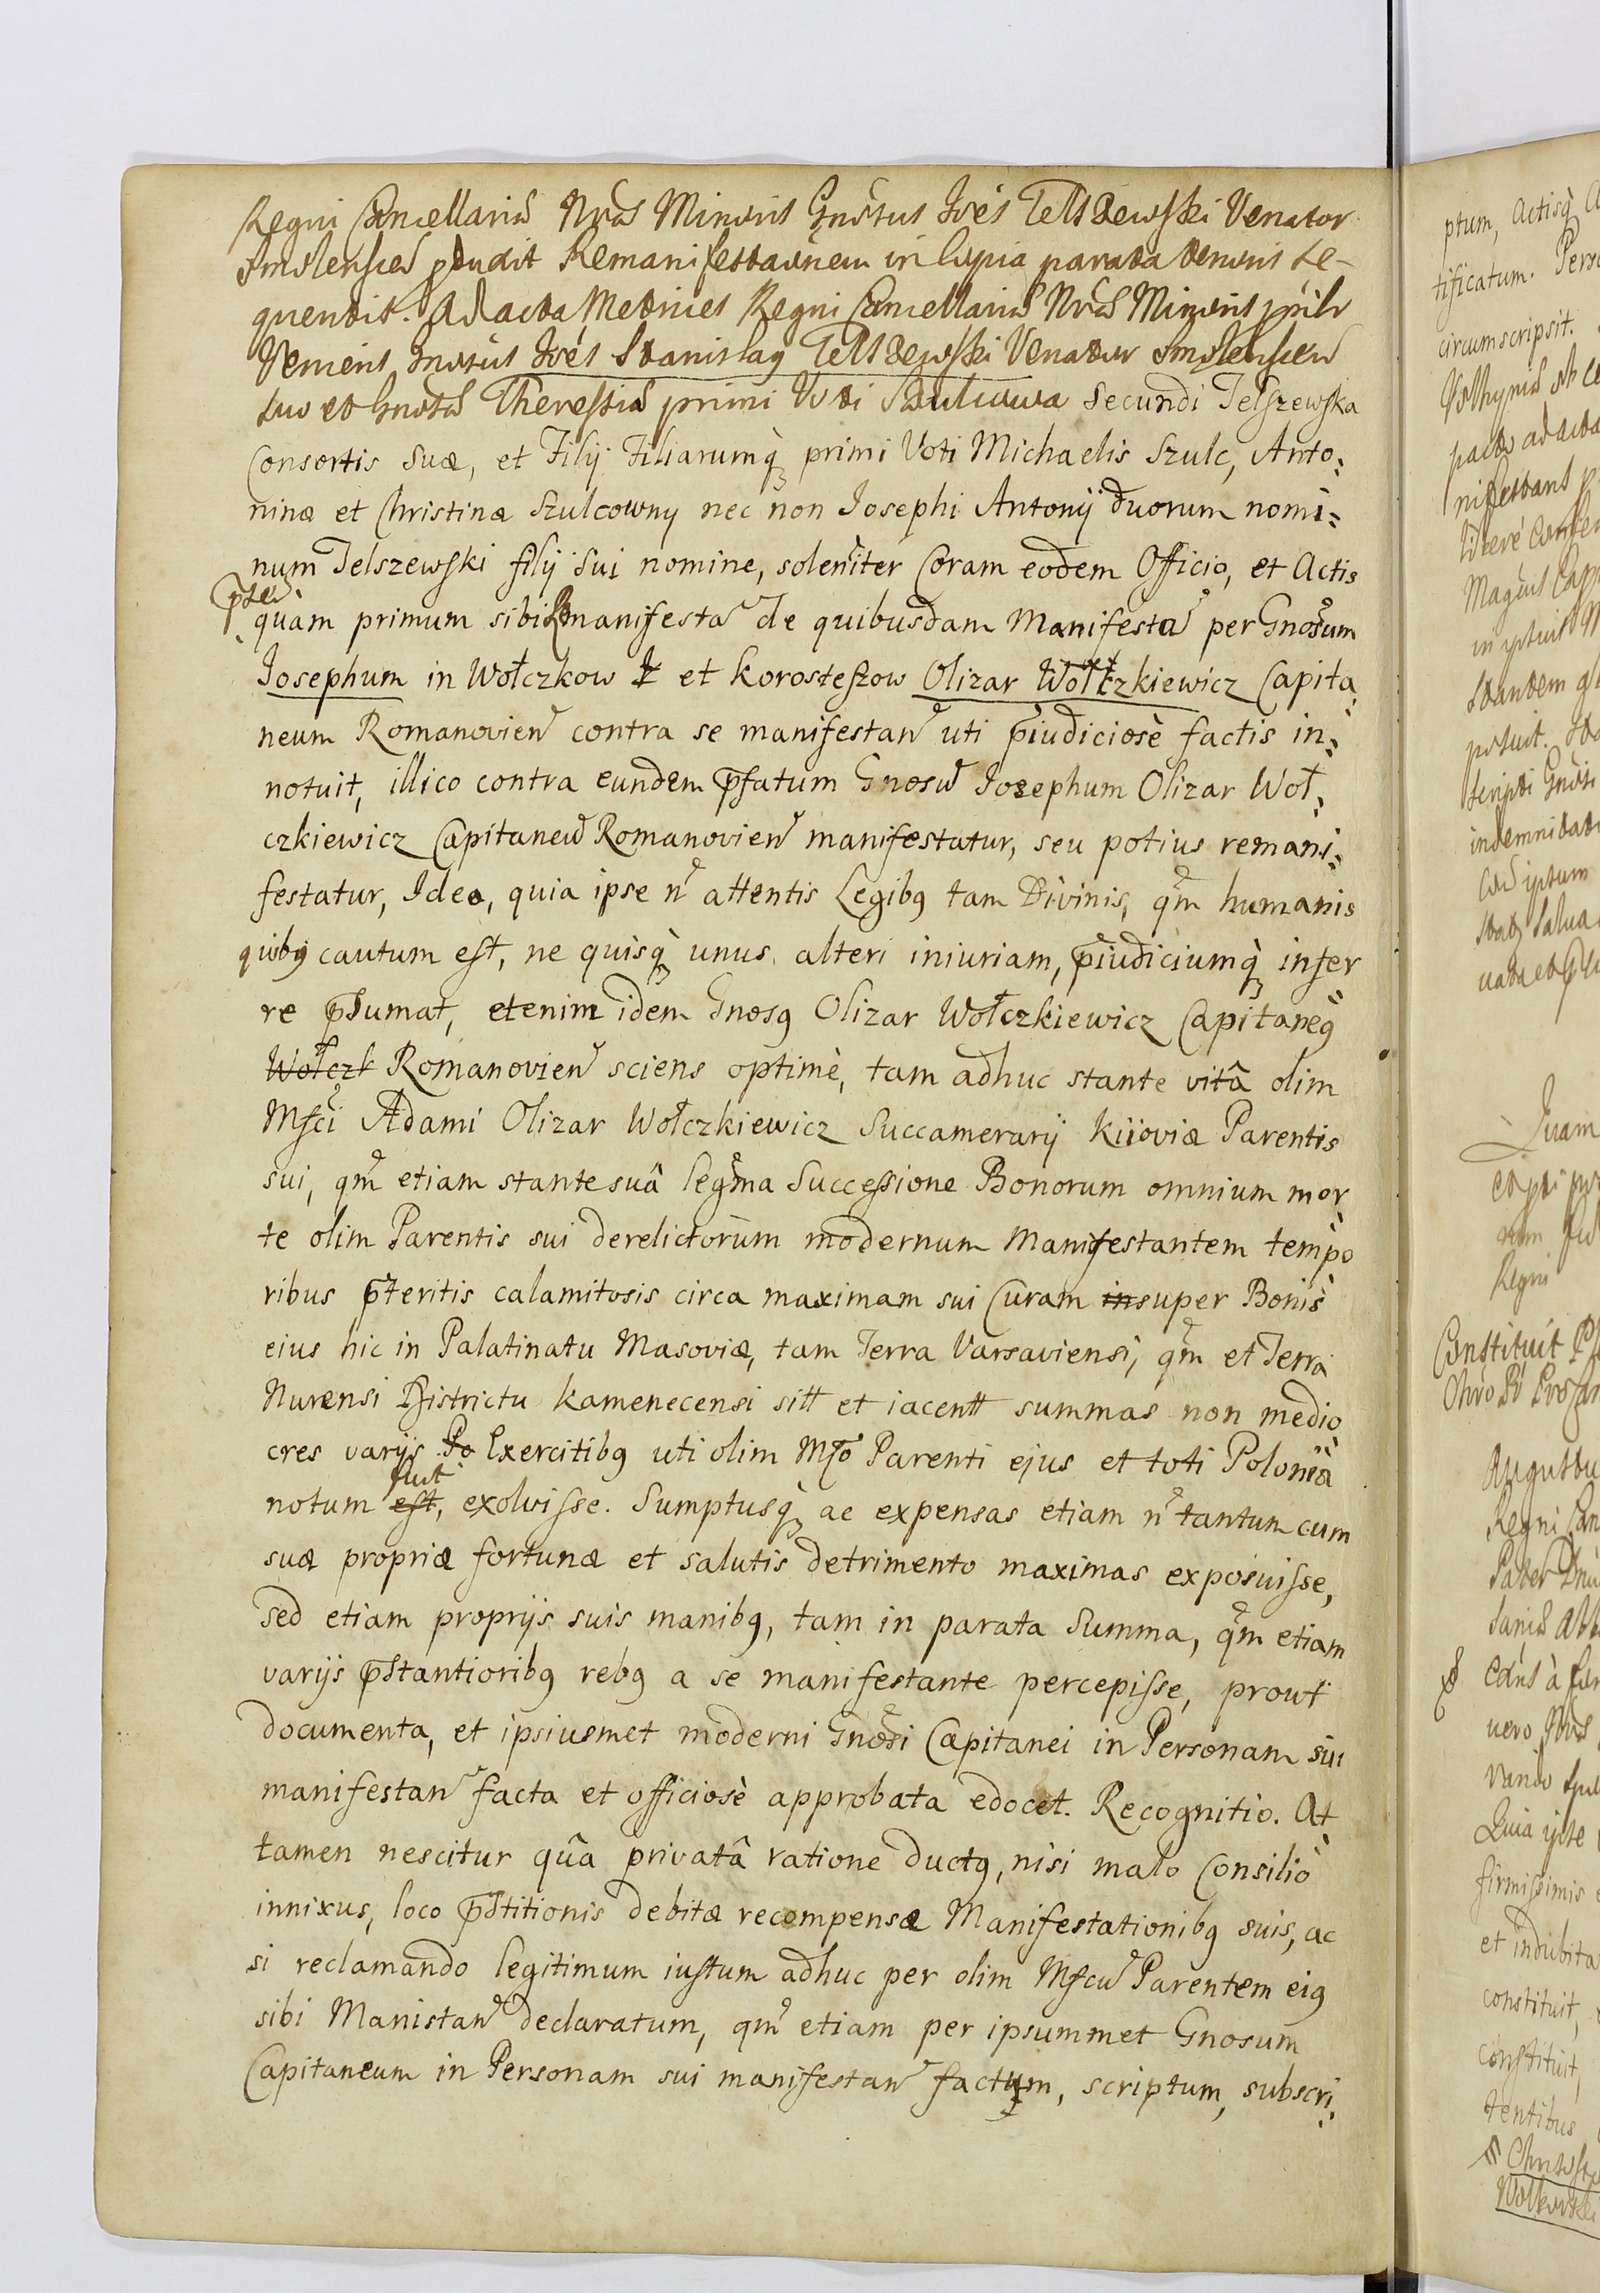 Regni Cancellariæ Nræ Minoris Gnosus Joēs Telszewski Venator
Smolenscen produxit Remanifestaōnem in Copia parata tenoris se-
quentis. Ad acta Metrices Regni Cancellariæ Nræ Minoris
Veniens Gnosus Joēs Stanislaꝯ Telszewski Venator Smolenscen
suo et Gnosæ Theressiæ primi Voti Szulcowa Secundi Telszewska
Consortis Suæ, et Filij Filiarumq̀ primi Voti Michaelis Szulc, Anto:
ninæ et Christinæ Szulcowny nec non Josephi Antonij duorum nomi:
num Telszewski filij Sui nomine, soleniter Coram eodem Officio, et Actis
quàm primum sibi Remanifestan̄ de quibusdam Manifestan̄ per Gnosum
Josephum in Wołczkow et Korosteszow Olizar Wołczkiewicz Capita
neum Romanovien̄ contra se manifestan̄ uti p̄iudiciosè factis in:
notuit, illico contra eundem p̄fatum Gnosū Josephum Olizar Woł:
czkiewicz Capitaneū Romanovien̄ manifestatur, seu potius remani:
festatur, Ideo, quia ipse n̄ attentis Legibꝯ tam Divinis, qm̄ humanis
quibꝯ cautum est, ne quisq̀ unus alteri iniuriam, p̄iudiciumq̀ infer
re p̄sumat, etenim idem Gnosꝯ Olizar Wołczkiewicz Capitaneꝯ
Wołczk Romanovien̄ sciens optimè, tam adhuc stante vitâ olim
Mfci Adami Olizar Wołczkiewicz Succamerarij Kiioviæ Parentis
sui, qm̄ etiam stante suâ legma Successione Bonorum omnium mor
te olim Parentis sui derelictorum modernum Manifestantem tempo
ribus p̄teritis calamitosis circa maximam sui Curam in super Bonis
eius hic in Palatinatu Masoviæ, tam Terra Varsaviensi, qm̄ et Terra
Nurensi Districtu Kamenecensi sitt et iacentt summas non medio
cres varijs Exercitibꝯ uti olim Mfo Parenti ejus et toti Poloniæ
notum est, fuit exolvisse. Sumptusq̀ ac expensas etiam n̄ tantum cum
suæ propriæ fortunæ et salutis detrimento maximas exposuisse,
sed etiam proprijs suis manibꝯ, tam in parata Summa, qm̄ etiam
varijs p̄stantioribꝯ rebꝯ a se manifestante percepisse, prout
documenta, et ipsiusmet moderni Gnosi Capitanei in Personam sui
manifestan̄ facta et officiosè approbata edocet. Recognitio. At
tamen nescitur quâ privatâ ratione ductꝯ, nisi malo Consilio
innixus, loco p̄stitionis debitæ recompensæ Manifestationibꝯ suis, ac
si reclamando legitimum iustum adhuc per olim Mfcū Parentem eiꝯ
sibi Manistan̄ declaratum, qm̄ etiam per ipsummet Gnosum
Capitaneum in Personam sui manifestan̄ factum, scriptum, subscri:
ptum, Actisq̀
tificatum.
circumscripsit.
indemnitate
Regni
Constituit
firmissimis
et indubita
constituit,
constituit,
tentibus